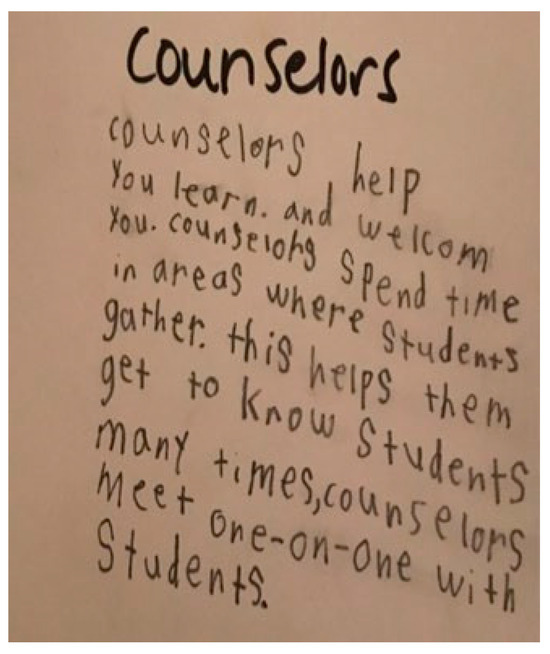 Counselors
counselors help
You learn. and welcom
You. counselors spend time
in areas where students
gather. this helps them
get to know students
many times, counselors
Meet one-on-one with
Students.